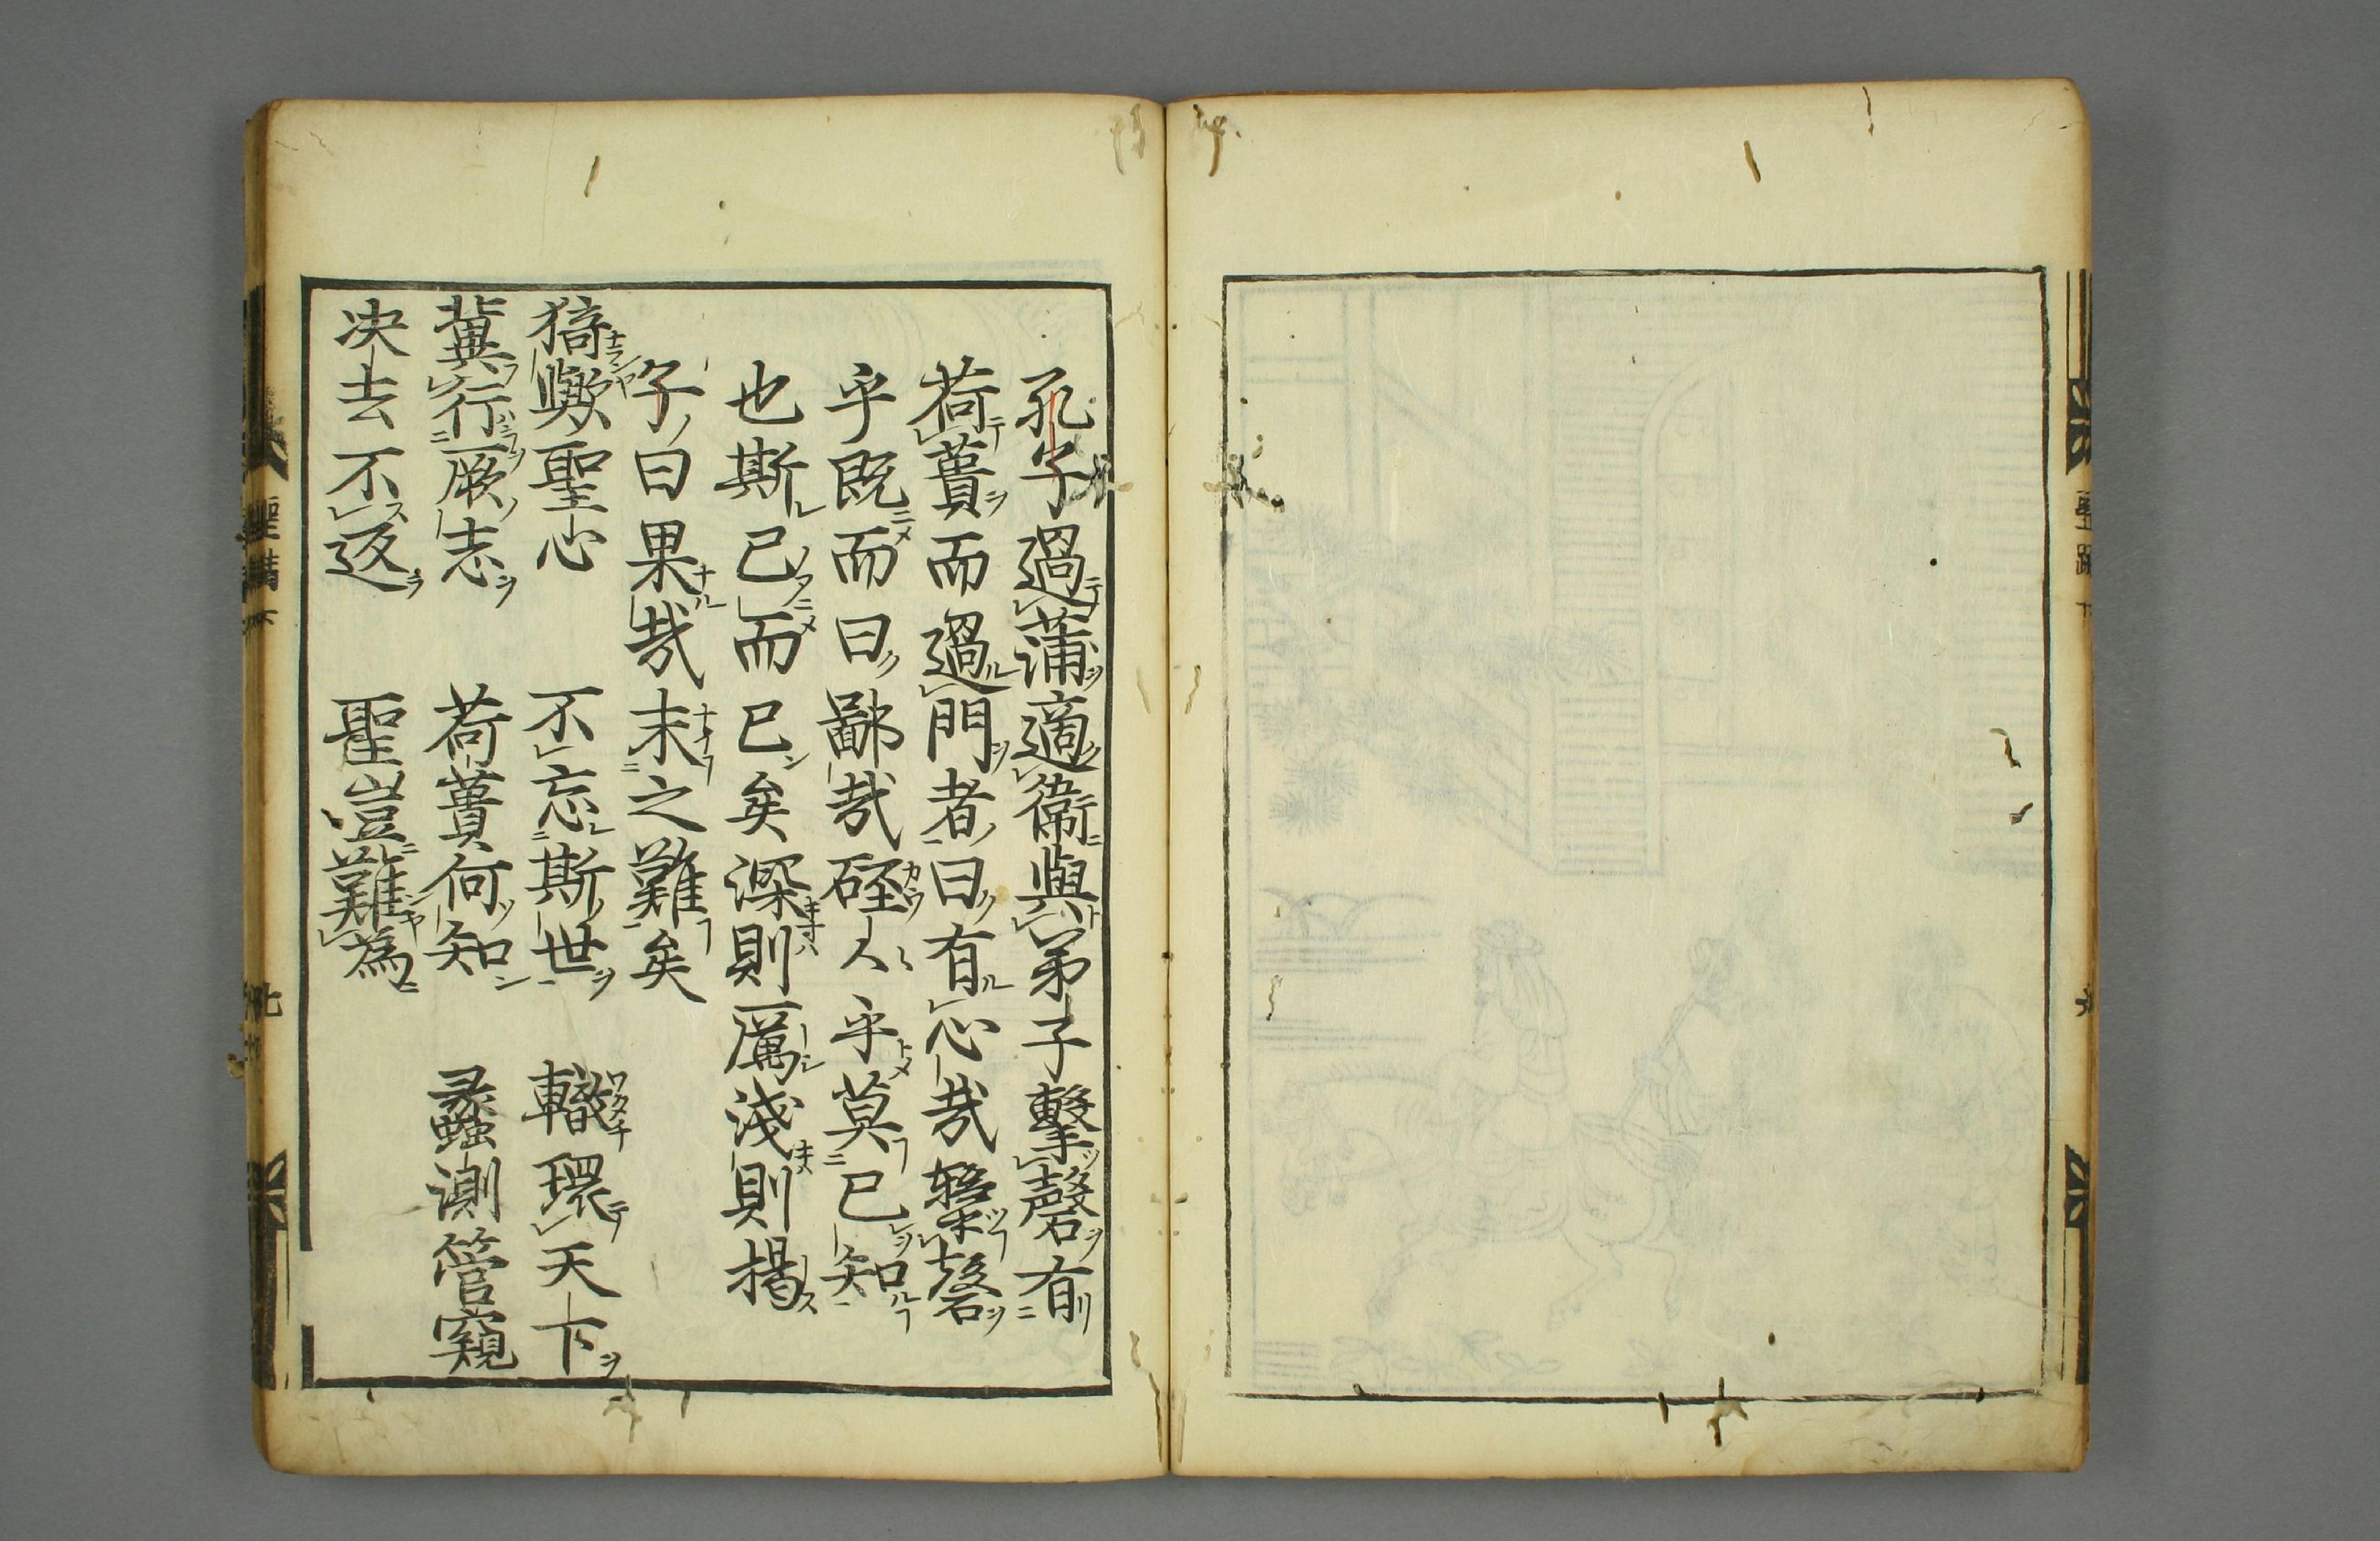 孔子過蒲適衛與弟子擊磬有
荷蕢而過門者曰有心哉擊磬
乎既而曰鄙哉硜人乎莫己知
也斯己而已矣深則厲淺則揭
子曰果哉末之難矣
猗歟聖心 不忘斯世 轍環天下
冀行厥志 荷蕢何知 蠡測管窺
决去不返 聖豈難為